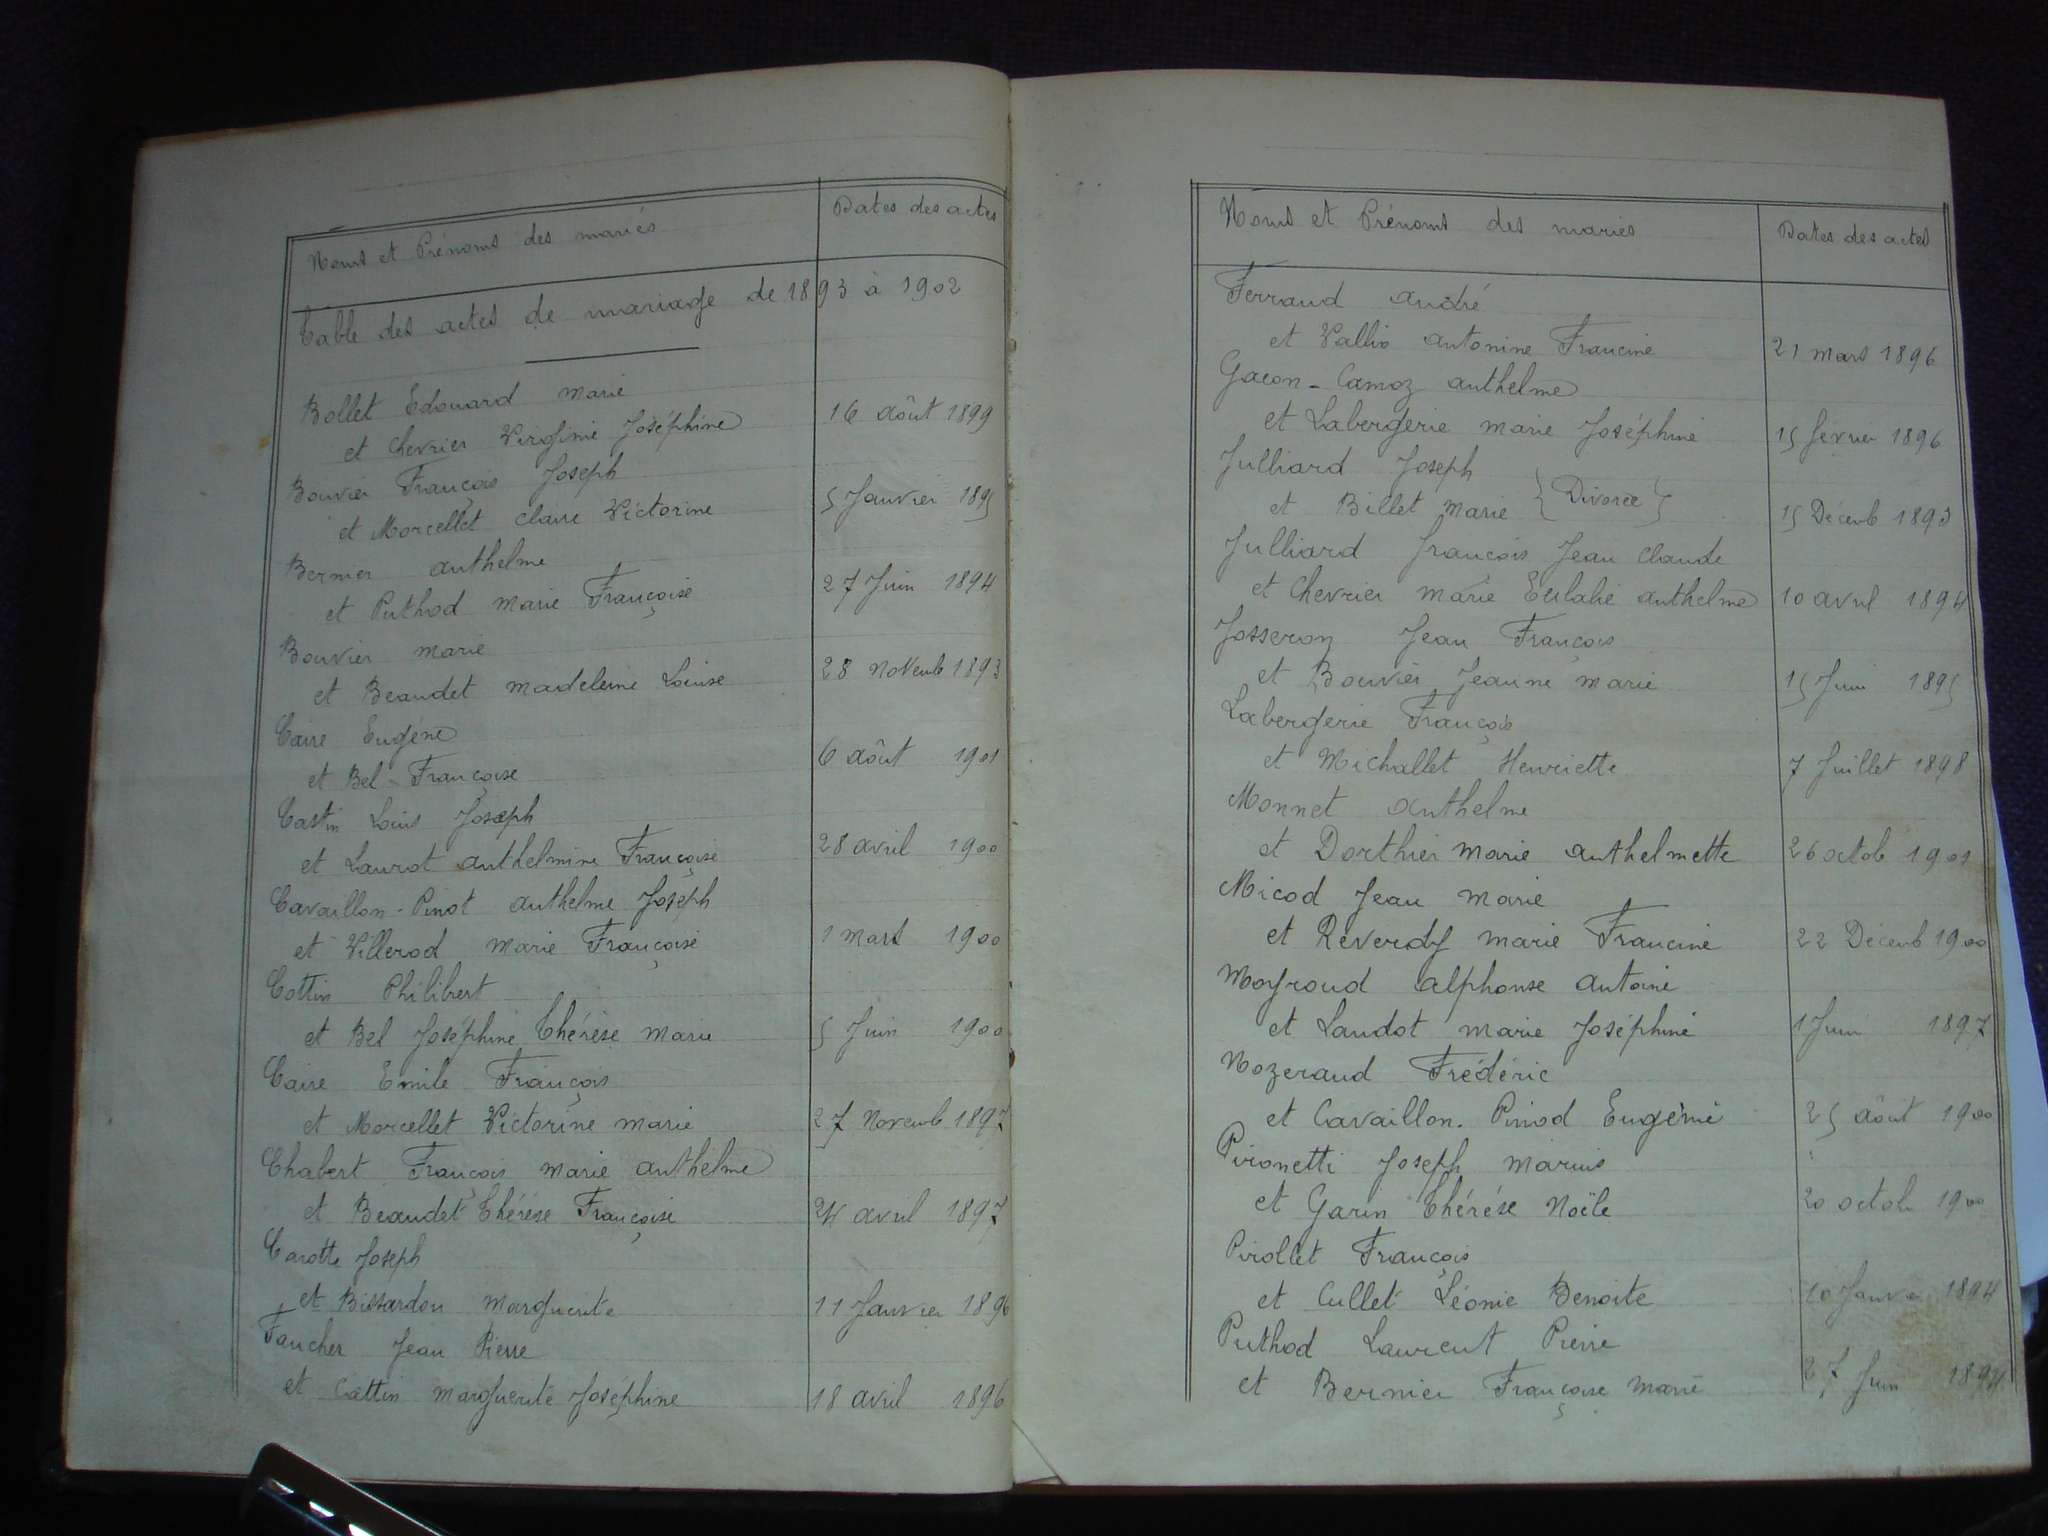 Noms et Prénoms des mariés
Dates des actes
Table des actes de mariage de 1893 à 1902
Bollet Edouard marie
et Chevrier Virginie Joséphine 16 aôut 1899
Bouvier François Joseph
et Morcellet Claire Victorine 5 Janvier 1895
Bernier anthelme
et Puthod Marie Françoise 27 Juin 1894
Bouvier marie
et Beaudet Madeleine Louise 28 Novemb 1893
Caire Eugène
et Bel Françoise 6 aôut 1901
Castin Louis Joseph
et Laurot anthelmine Françoise 28 avril 1900
Cavaillon-Pinot anthelme Joseph
et Villerod Marie Françoise 1 Mars 1900
Cottin Philibert
et Bel Joséphine Thérèse Marie 5 Juin 1900
Caire Emile François
et Morcellet Victorine marie 27 Novemb 1897
Chabert François Marie anthelme
et Beaudet Thérèse Françoise 24 avril 1897
Carotte Joseph
et Bissardon Marguerite 11 Janvier 1896
Faucher Jean Pierre
et Cattin Marguerite Joséphine 18 avril 1896
Noms et Prénoms des mariés
Dates des actes
Ferraud andré
et Vallin antonine Francine 21 mars 1896
Gacon-Camoz anthelme
et Labergerie marie Joséphine 15 fevrier 1896
Julliard Joseph
et Billet Marie { Divorce } 15 Décemb 1893
Julliard françois Jean Claude
et Chevrier Marie Eulalie anthelme 10 avril 1894
Josseron Jean François
et Bouvier Jeanne Marie 15 Juin 1895
Labergerie François
et Michallet Henriette 7 Juillet 1898
Monnet anthelme
et Dorthier Marie anthelmette 26 octob 1901
Micod Jean Marie
et Reverdy Marie Francine 22 Décemb 1900
Moyroud alphonse antoine
et Laudot Marie Joséphine 1 Juin 1897
Nozeraud Frédéric
et Cavaillon-Pinod Eugénie 25 aôut 1900
Pironetti Joseph Marius
et Garin Thérèse Noële 20 octob 1900
Pirollet François
et Cullet Léonie Benoite 10 Janvie 1894
Puthod Laurent Pierre
et Bernier Françoise Marie 27 Juin 1894